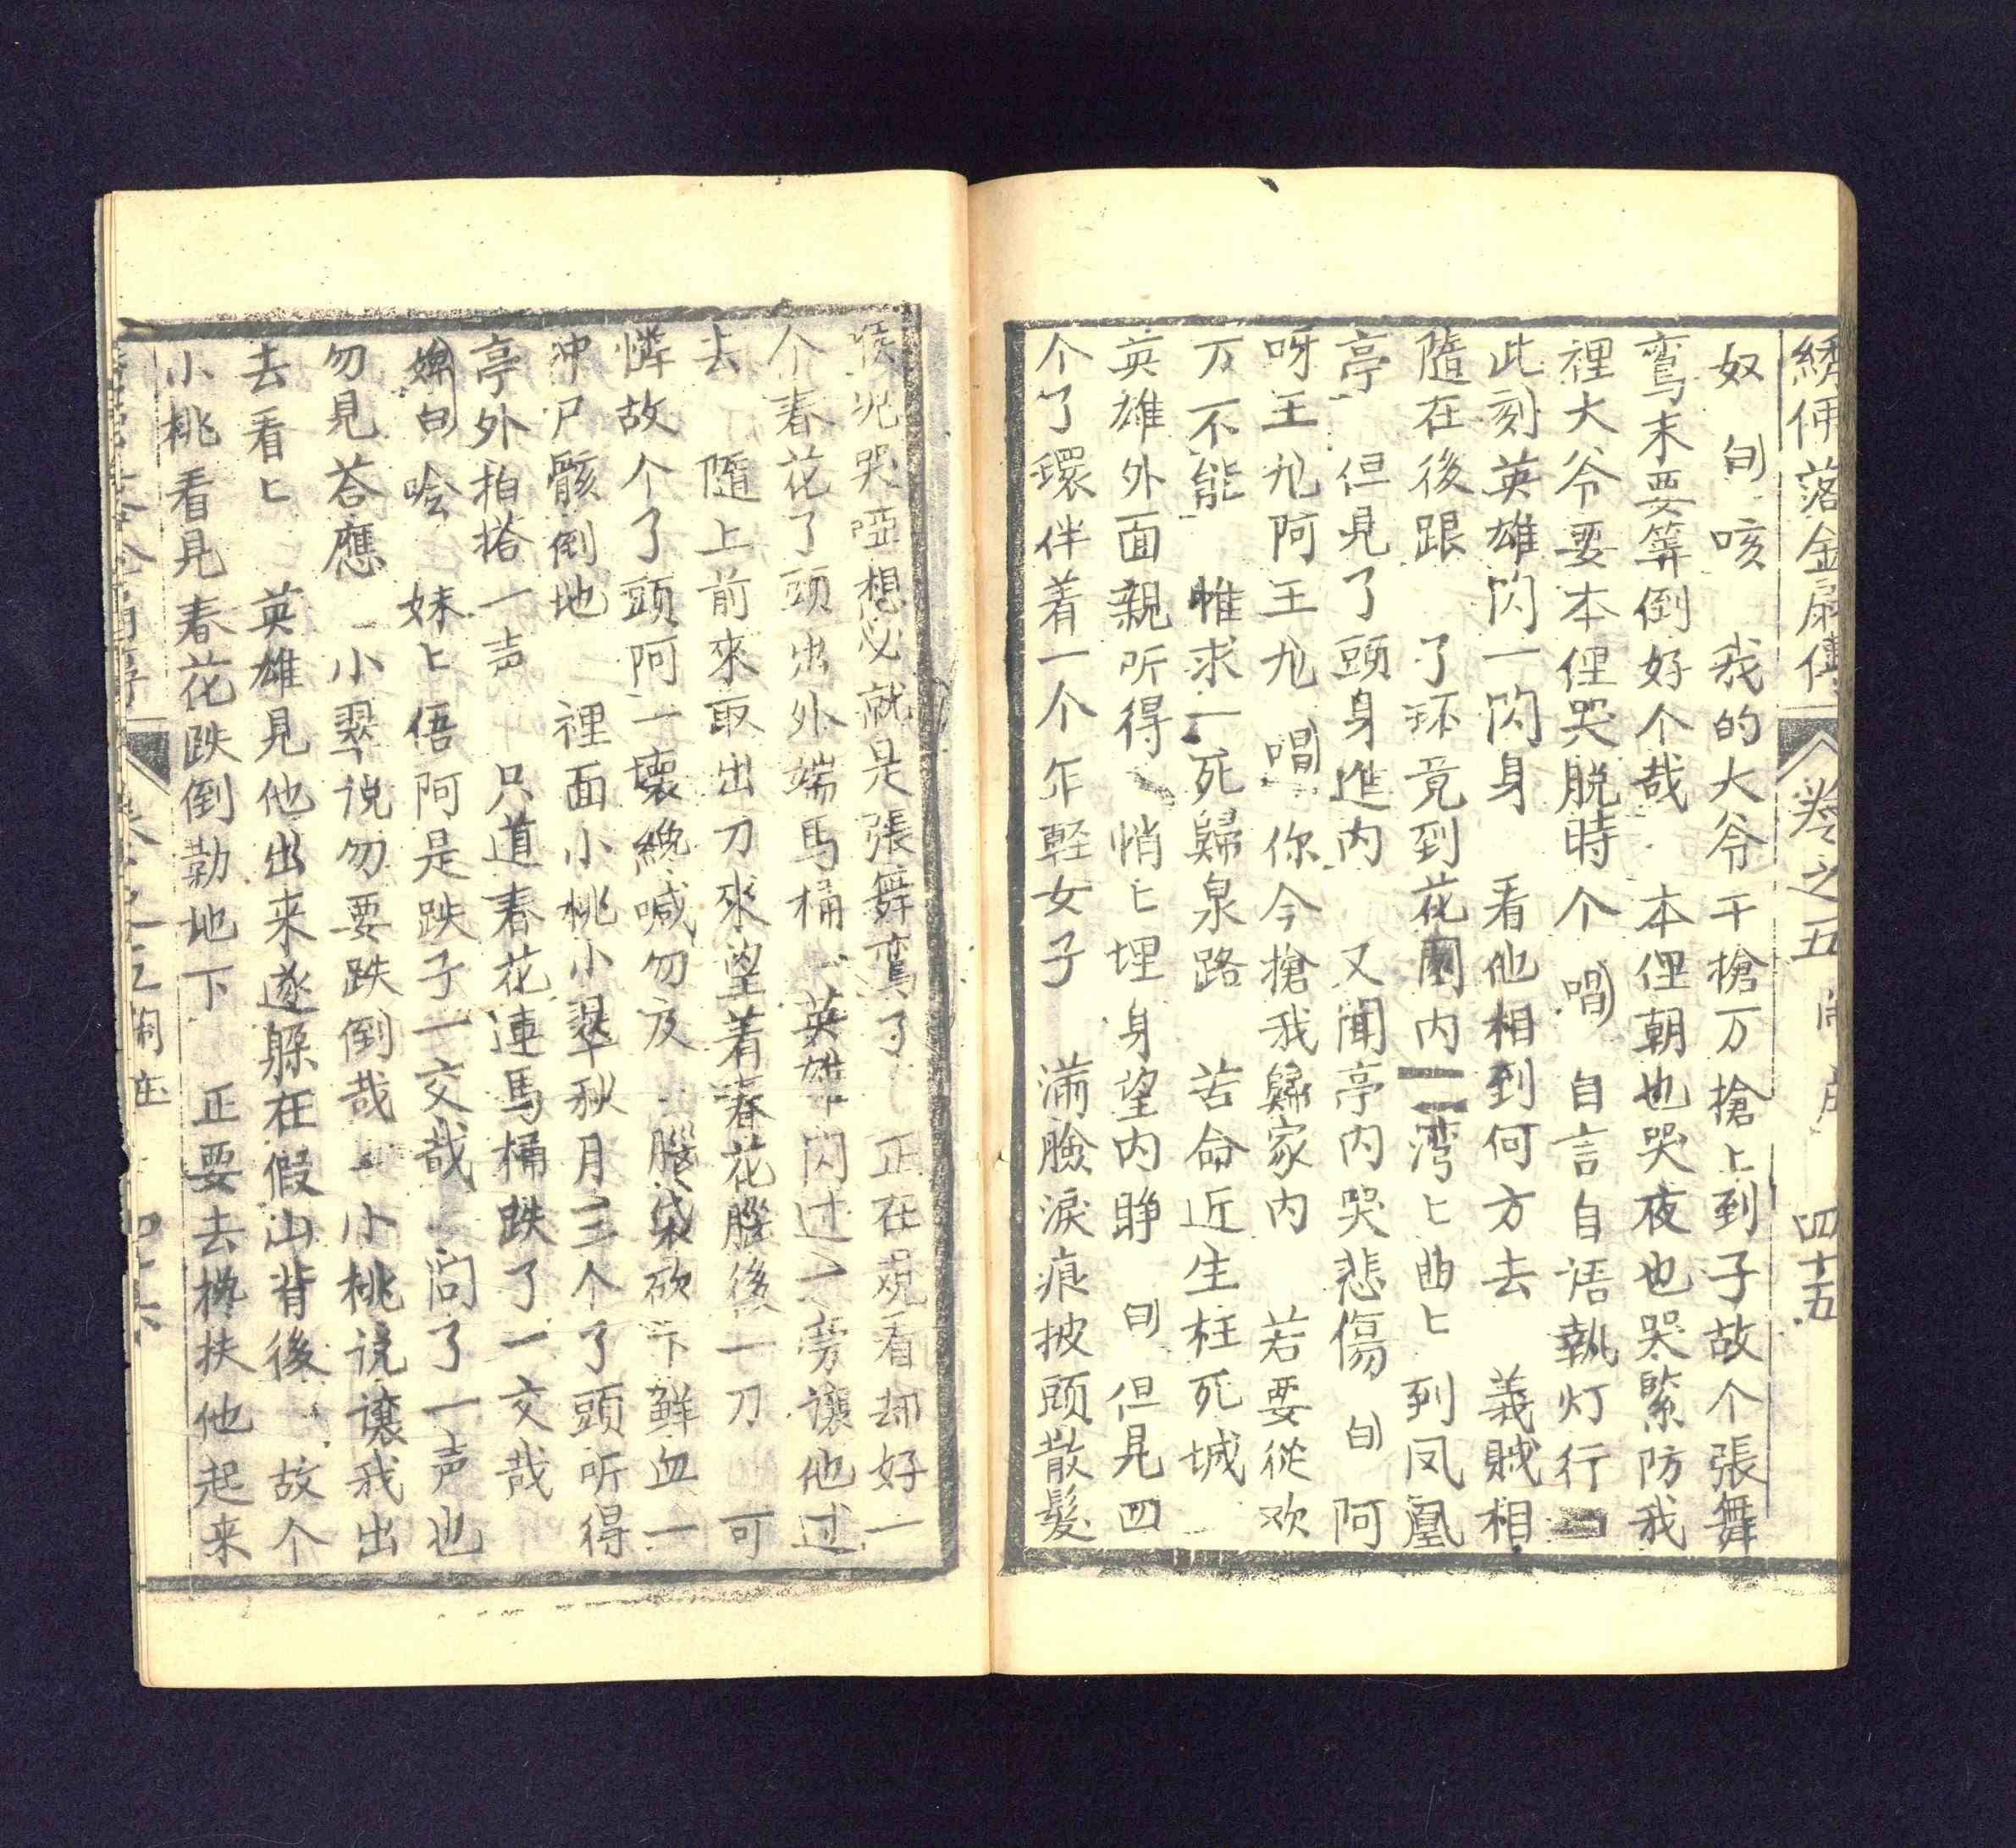 綉佣落金扇傳 卷之五 四十五
奴 白 咳 我的大爷千搶万搶上到子故个張舞
鸾末要筭倒好个哉 本俚朝也哭夜也哭緊防我
裡大爷要本俚哭脱時个 唱 自言自语執灯行
此刻英雄闪一閃身 看他相到何方去 義賊相
隨在後跟 了环竟到花園内 湾匕曲匕到凤凰
亭 但見了頭身進内 又聞亭内哭悲傷 白 阿
呀王九阿王九 唱 你今搶我歸家内 若要從欢
万不能 惟求一死歸泉路 苦命近生枉死城
英雄外面親所得 悄匕埋身望内睁 白 但見四
个了環伴着一个年輕女子 满臉淚痕披頭散髮
哭哑想必就是張舞鸾了 正在观看却好一
个春花了頭出外端馬桶 英雄闪过一旁讓他过
去 隨上前來取出刀來望着春花腦後一刀 可
憐故个了頭阿一壞緫喊勿及 腦袋砍下鲜血一
冲尸骸倒地 裡面小桃小翠秋月三个了頭所得
亭外拍搭一声 只道春花連馬桶跌了一交哉
婢白 唅 妹匕偖阿是跌子一交哉 问了一声也
勿見荅應 小翠说勿要跌倒哉 小桃说讓我出
去看匕 英雄見他出来遂躱在假山背後 故个
小桃看見春花跌倒勒地下 正要去搀扶他起来